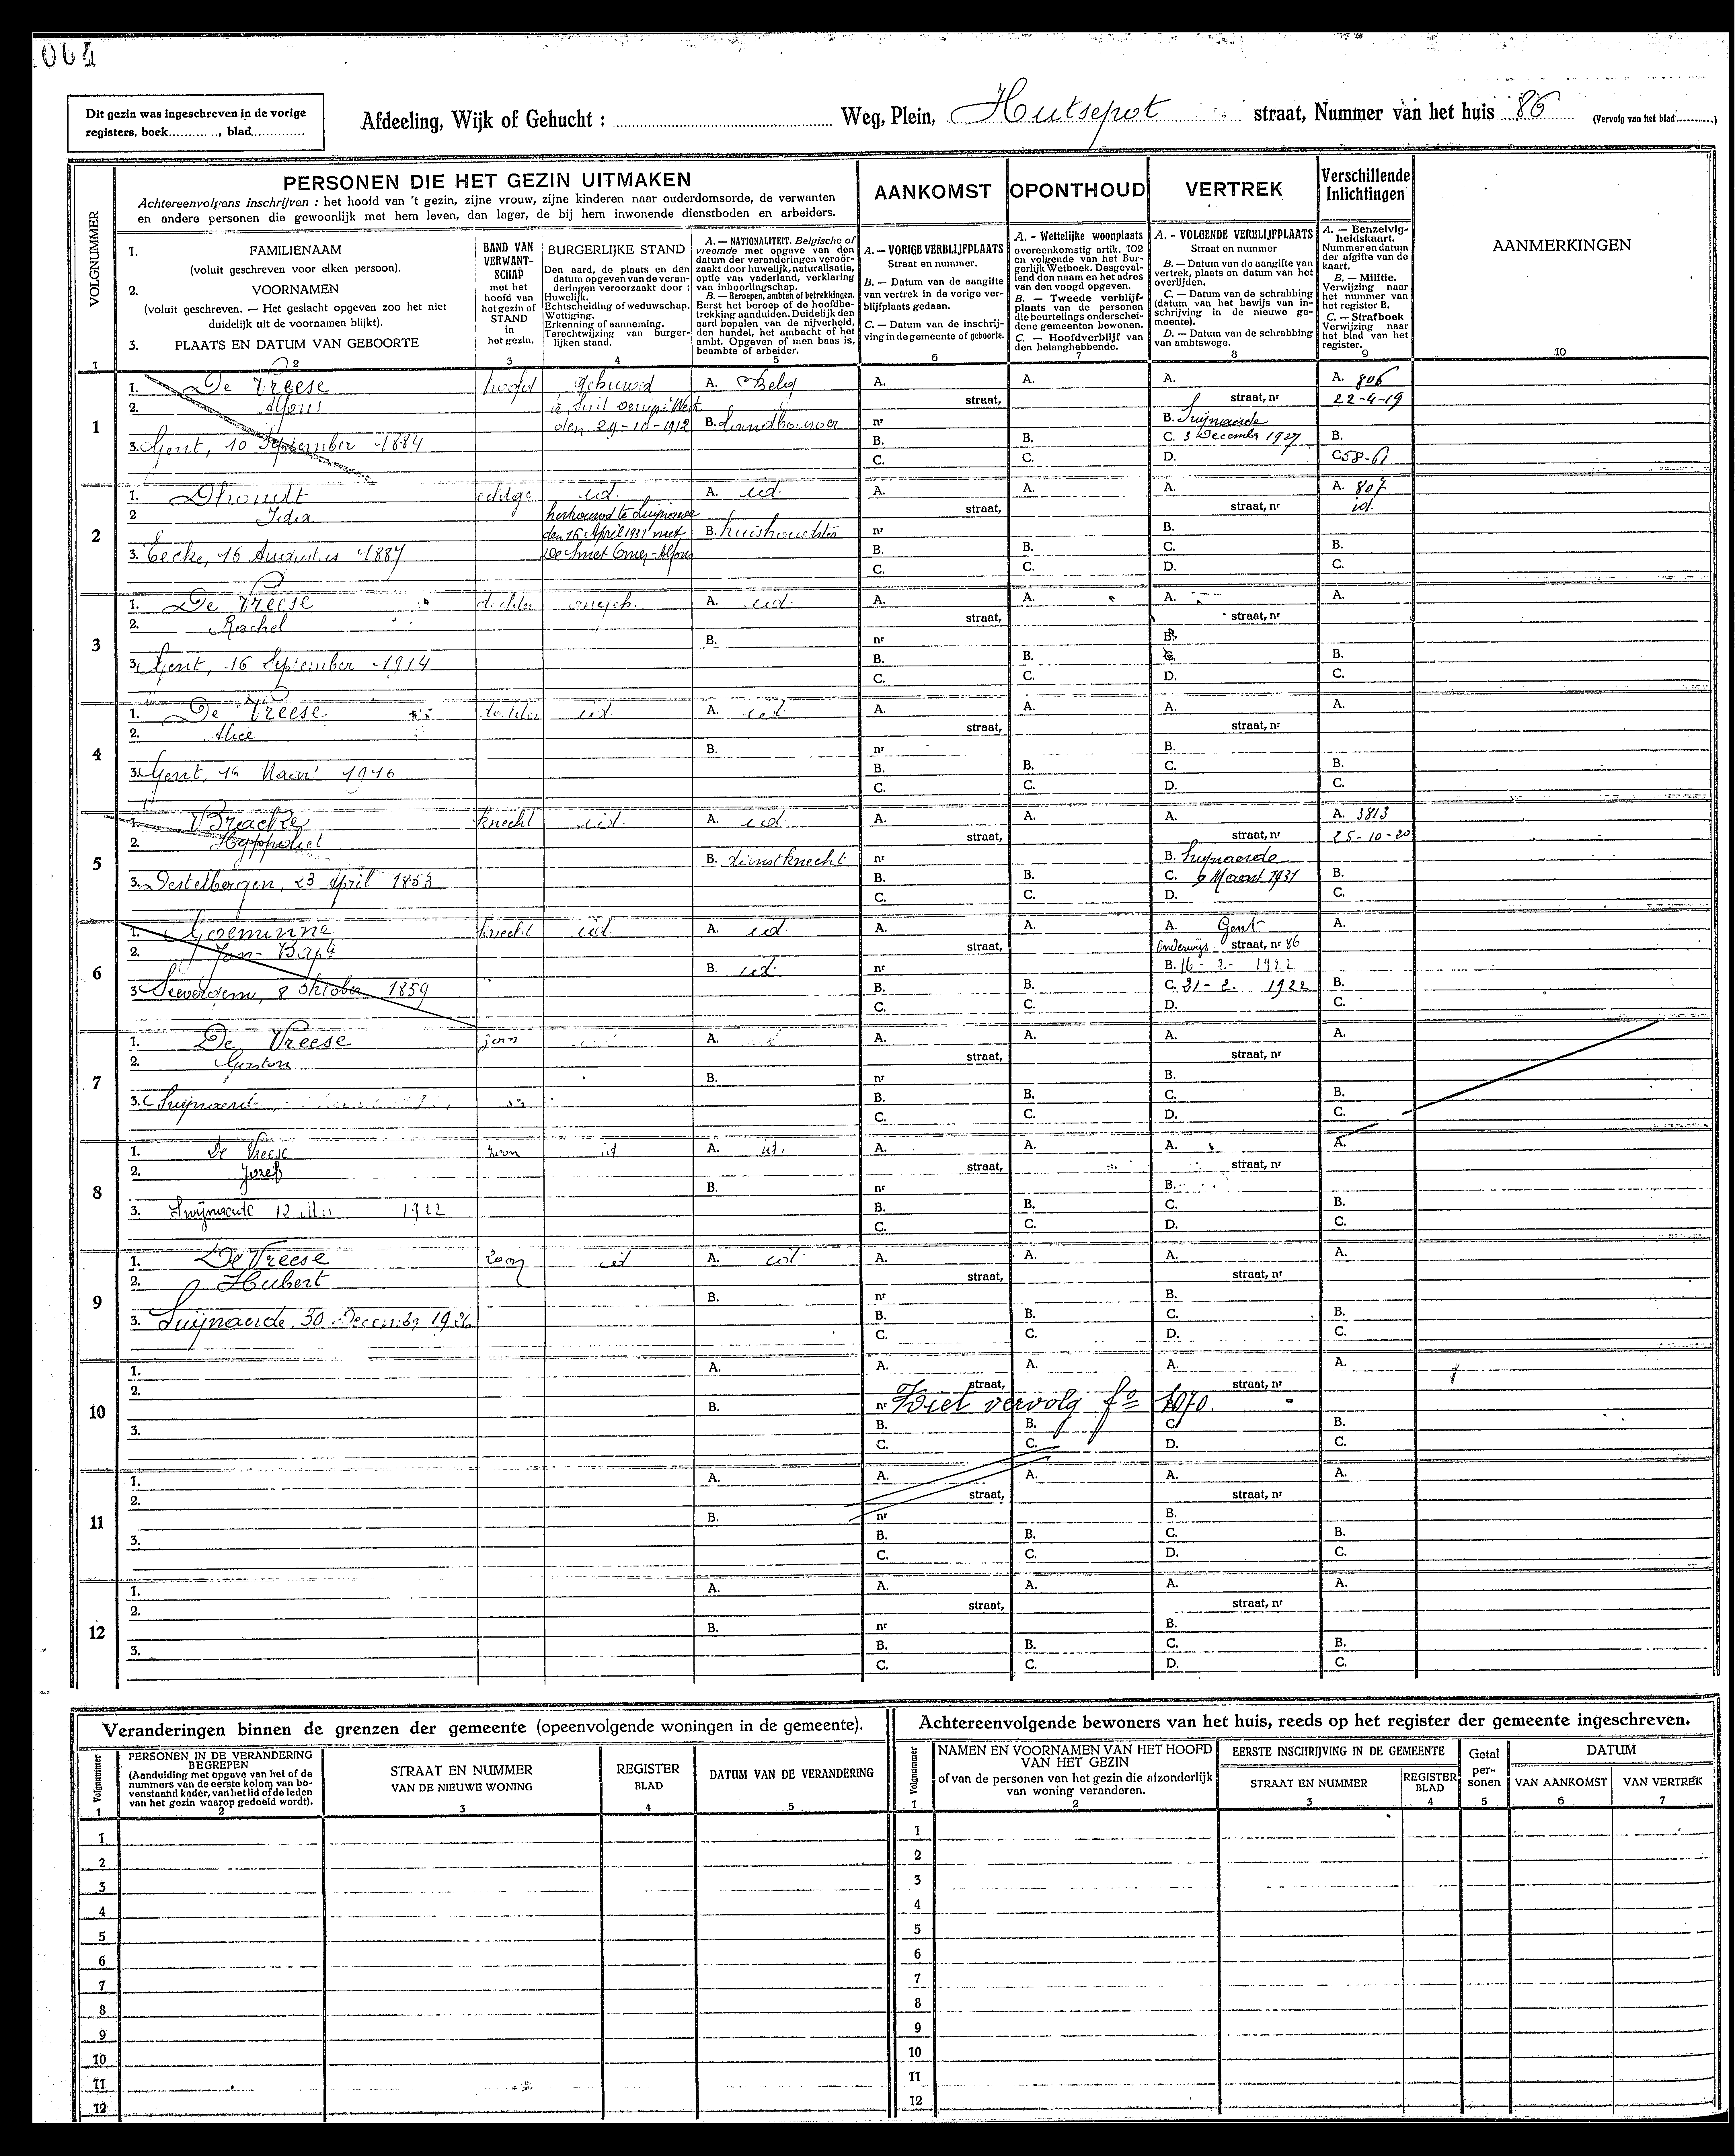 064
Dit gezin was ingeschreven in de vorige
registers, boek............, blad.............
Afdeeling, Wijk of Gehucht :
Weg, Plein, Hutsepot straat, Nummer van het huis 86 (Vervolg van het blad ..........)
VOLGNUMMER
PERSONEN DIE HET GEZIN UITMAKEN
Achtereenvolgens inschrijven : het hoofd van 't gezin, zijne vrouw, zijne kinderen naar ouderdomsorde, de verwanten
en andere personen die gewoonlijk met hem leven, dan lager, de bij hem inwonende dienstboden en arbeiders.
AANKOMST
OPONTHOUD
VERTREK
Verschillende
Inlichtingen
1. FAMILIENAAM
(voluit geschreven voor elken persoon).
2. VOORNAMEN
(voluit geschreven. — Het geslacht opgeven zoo het niet
duidelijk uit de voornamen blijkt).
3. PLAATS EN DATUM VAN GEBOORTE
BAND VAN
VERWANT-
SCHAP
met het
hoofd van
het gezin of
STAND
in
het gezin.
BURGERLIJKE STAND
Den aard, de plaats en den
datum opgeven van de veran-
deringen veroorzaakt door :
Huwelijk.
Echtscheiding of weduwschap.
Wettiging.
Erkenning of aanneming.
Terechtwijzing van burger-
lijken stand.
A. — NATIONALITEIT. Belgische of
vreemde met opgave van den
datum der veranderingen veroor-
zaakt door huwelijk, naturalisatie,
optie van vaderland, verklaring
van inboorlingschap.
B. — Beroepen, ambten of betrekkingen.
Eerst het beroep of de hoofdbe-
trekking aanduiden. Duidelijk den
aard bepalen van de nijverheid,
den handel, het ambacht of het
ambt. Opgeven of men baas is,
beambte of arbeider.
A. — VORIGE VERBLIJFPLAATS
Straat en nummer.
B. — Datum van de aangifte
van vertrek in de vorige ver-
blijfplaats gedaan.
C. — Datum van de inschrij-
ving in de gemeente of geboorte.
A. - Wettelijke woonplaats
overeenkomstig artik. 102
en volgende van het Bur-
gerlijk Wetboek. Desgeval-
lend den naam en het adres
van den voogd opgeven.
B. — Tweede verblijf-
plaats van de personen
die beurtelings onderschei-
dene gemeenten bewonen.
C. — Hoofdverblijf van
den belanghebbende.
A. - VOLGENDE VERBLIJFPLAATS
Straat en nummer
B. — Datum van de aangifte van
vertrek, plaats en datum van het
overlijden.
C. — Datum van de schrabbing
(datum van het bewijs van in-
schrijving in de nieuwe ge-
meente).
D. — Datum van de schrabbing
van ambtswege.
A. — Eenzelvig-
heidskaart.
Nummer en datum
der afgifte van de
kaart.
B. — Militie.
Verwijzing naar
het nummer van
het register B.
C. — Strafboek
Verwijzing naar
het blad van het
register.
AANMERKINGEN
1 2 3 4 5 6 7 8 9 10
1
1. De Vreese hoofd gehuwd A. Belg A. A. A. A. 806
2. Alfons straat, straat, nr 22-4-19
den 29-10-1912 B. Landbouwer nr B. Swijnaerde
3. Gent, 10 September 1884 B. B. C. 3 December 1927 B.
C. C. D. C 58-61
2
1. Dhondt echtge id. A. id. A. A. A. A. 807
2 Idea herhuwd te Swijnaerde straat, straat, nr id.
den 16 April 1931 met B. huishoudster nr B.
3. Eecke, 16 Augustus 1887 De Smet Omer-Alfons B. B. C. B.
C. C. D. C.
3
1. De Vreese dochter ongeh. A. id. A. A. A. A.
2. Rachel straat, straat, nr
B. nr B.
3. Gent, 16 September 1914 B. B. C. B.
C. C. D. C.
4
1. De Vreese dochter id A. id. A. A. A. A.
2. Alice straat, straat, nr
B. nr B.
3. Gent, 1916 B. B. C. B.
C. C. D. C.
5
1. Bracke knecht id. A. id. A. A. A. A. 3813
2. Hyppoliet straat, straat, nr 25-10-20
B. dienstknecht nr B. Swijnaerde
3. Destelbergen, 23 April 1853 B. B. C. 9 Maart 1931 B.
C. C. D. C.
6
1. Goeminne knecht id. A. id. A. A. A. Gent A.
2. Jan-Bapte straat, Onderwijs straat, nr 86
B. id. nr B. 16-2-1922
3 Seevergem, 8 Oktober 1859 B. B. C. 21-2. 1922 B.
C. C. D. C.
7
1. De Vreese zoon A. A. A. A. A.
2. Gaston straat, straat, nr
B. nr B.
3. Swijnaerde B. B. C. B.
C. C. D. C.
8
1. De Vreese zoon id A. id. A. A. A. A.
2. Jozef straat, straat, nr
B. nr B.
3. Swijnaerde 12 1922 B. B. C. B.
C. C. D. C.
9
1. De Vreese zoon id A. id. A. A. A. A.
2. Hubert straat, straat, nr
B. nr B.
3. Swijnaerde, 30 December 1926 B. B. C. B.
C. C. D. C.
10
1. A. A. A. A. A.
2. straat, straat, nr
B. nr Ziet vervolg fo 1070.
3. B. B. C. B.
C. C. D. C.
11
1. A. A. A. A. A.
2. straat, straat, nr
B. nr B.
3. B. B. C. B.
C. C. D. C.
12
1. A. A. A. A. A.
2. straat, straat, nr
B. nr B.
3. B. B. C. B.
C. C. D. C.
Veranderingen binnen de grenzen der gemeente (opeenvolgende woningen in de gemeente).
Volgnummer
PERSONEN IN DE VERANDERING
BEGREPEN
(Aanduiding met opgave van het of de
nummers van de eerste kolom van bo-
venstaand kader, van het lid of de leden
van het gezin waarop gedoeld wordt).
STRAAT EN NUMMER
VAN DE NIEUWE WONING
REGISTER
BLAD
DATUM VAN DE VERANDERING
1 2 3 4 5
1
2
3
4
5
6
7
8
9
10
11
12
Achtereenvolgende bewoners van het huis, reeds op het register der gemeente ingeschreven.
Volgnummer
NAMEN EN VOORNAMEN VAN HET HOOFD
VAN HET GEZIN
of van de personen van het gezin die afzonderlijk
van woning veranderen.
EERSTE INSCHRIJVING IN DE GEMEENTE
STRAAT EN NUMMER
REGISTER
BLAD
Getal
per-
sonen
DATUM
VAN AANKOMST
VAN VERTREK
1 2 3 4 5 6 7
1
2
3
4
5
6
7
8
9
10
11
12